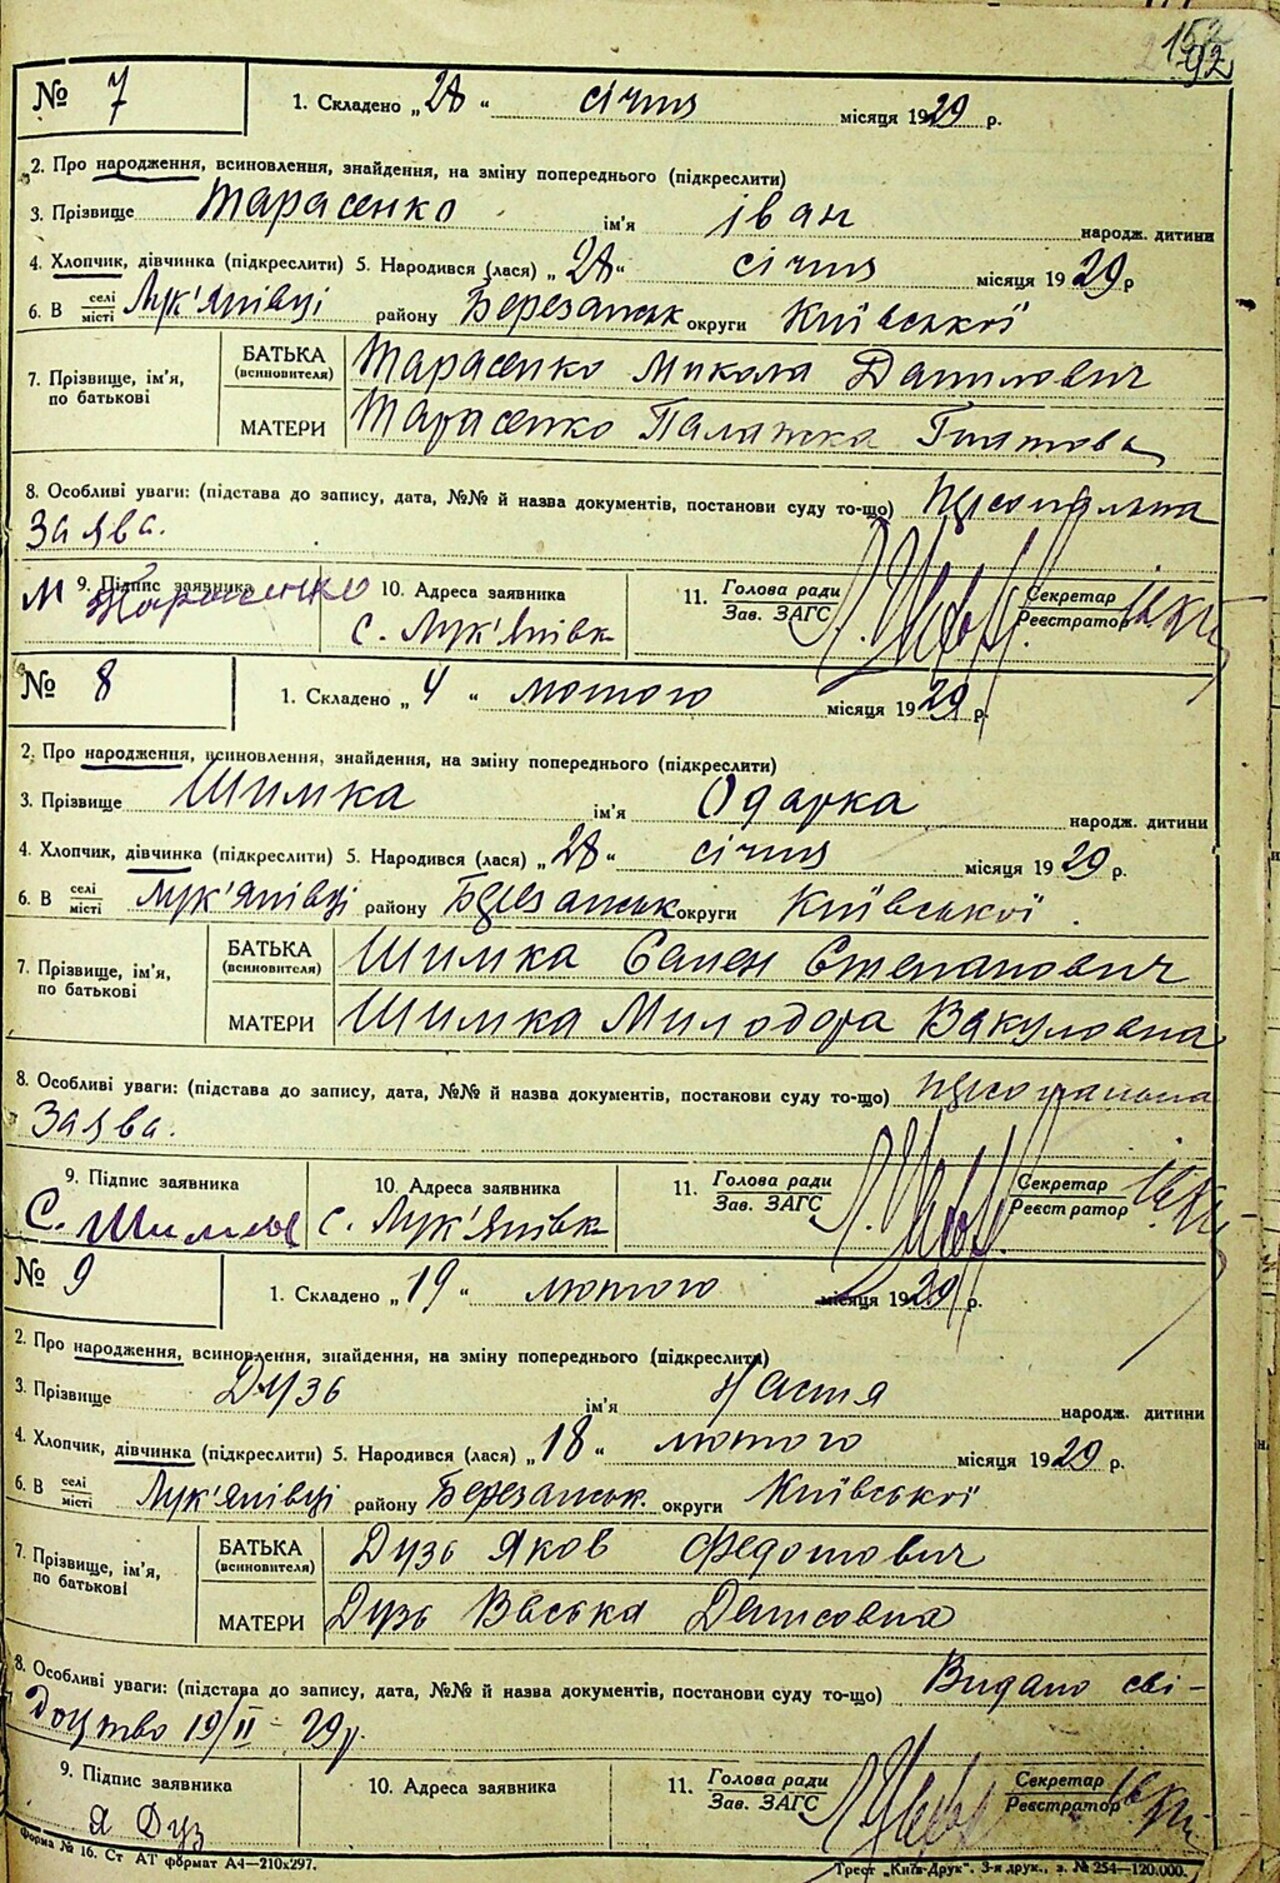 152
92
№ 7 1. Складено „28“ січня місяця 1929 р.
2. Про народження, всиновлення, знайдення, на зміну попереднього (підкреслити)
3. Прізвище Тарасенко ім'я Іван народж. дитини
4. Хлопчик, дівчинка (підкреслити) 5. Народився (лася) „28“ січня місяця 1929 р
6. В селі місті Лук'янівці району Березанськ округи Київської
7. Прізвище, ім'я, по батькові БАТЬКА (всиновителя) Тарасенко Микола Данилович
МАТЕРИ Тарасенко Палажка Гнатова
8. Особливі уваги: (підстава до запису, дата, №№ й назва документів, постанови суду то-що) персональна
Заява.
9. Підпис заявника М Тарасенко 10. Адреса заявника 11. Голова ради Зав. ЗАГС Секретар Реєстратор
с. Лук'янівк
№ 8 1. Складено „4“ лютого місяця 1929 р.
2. Про народження, всиновлення, знайдення, на зміну попереднього (підкреслити)
3. Прізвище Шимка ім'я Одарка народж. дитини
4. Хлопчик, дівчинка (підкреслити) 5. Народився (лася) „28“ січня місяця 1929 р.
6. В селі місті Лук'янівці району Березанськ округи Київської.
7. Прізвище, ім'я, по батькові БАТЬКА (всиновителя) Шимка Семен Степанович
МАТЕРИ Шимка Милодора Вакуловна
8. Особливі уваги: (підстава до запису, дата, №№ й назва документів, постанови суду то-що) персональна
Заява.
9. Підпис заявника 10. Адреса заявника 11. Голова ради Зав. ЗАГС Секретар Реєстратор
С. Шимка с. Лук'янівк
№ 9 1. Складено „19“ лютого місяця 1929 р.
2. Про народження, всиновлення, знайдення, на зміну попереднього (підкреслити)
3. Прізвище Дузь ім'я Настя народж. дитини
4. Хлопчик, дівчинка (підкреслити) 5. Народився (лася) „18“ лютого місяця 1929 р.
6. В селі місті Лук'янівці району Березанськ. округи Київської
7. Прізвище, ім'я, по батькові БАТЬКА (всиновителя) Дузь Яков Федотович
МАТЕРИ Дузь Вівська Денисовна
8. Особливі уваги: (підстава до запису, дата, №№ й назва документів, постанови суду то-що) Видано сві-
доцтво 19/II - 29р.
9. Підпис заявника 10. Адреса заявника 11. Голова ради Зав. ЗАГС Секретар Реєстратор
Я Дуз
Форма № 16. Ст АТ формат А4—210х297. Трест „Київ-Друк“. 3-я друк., з. № 254—120.000.